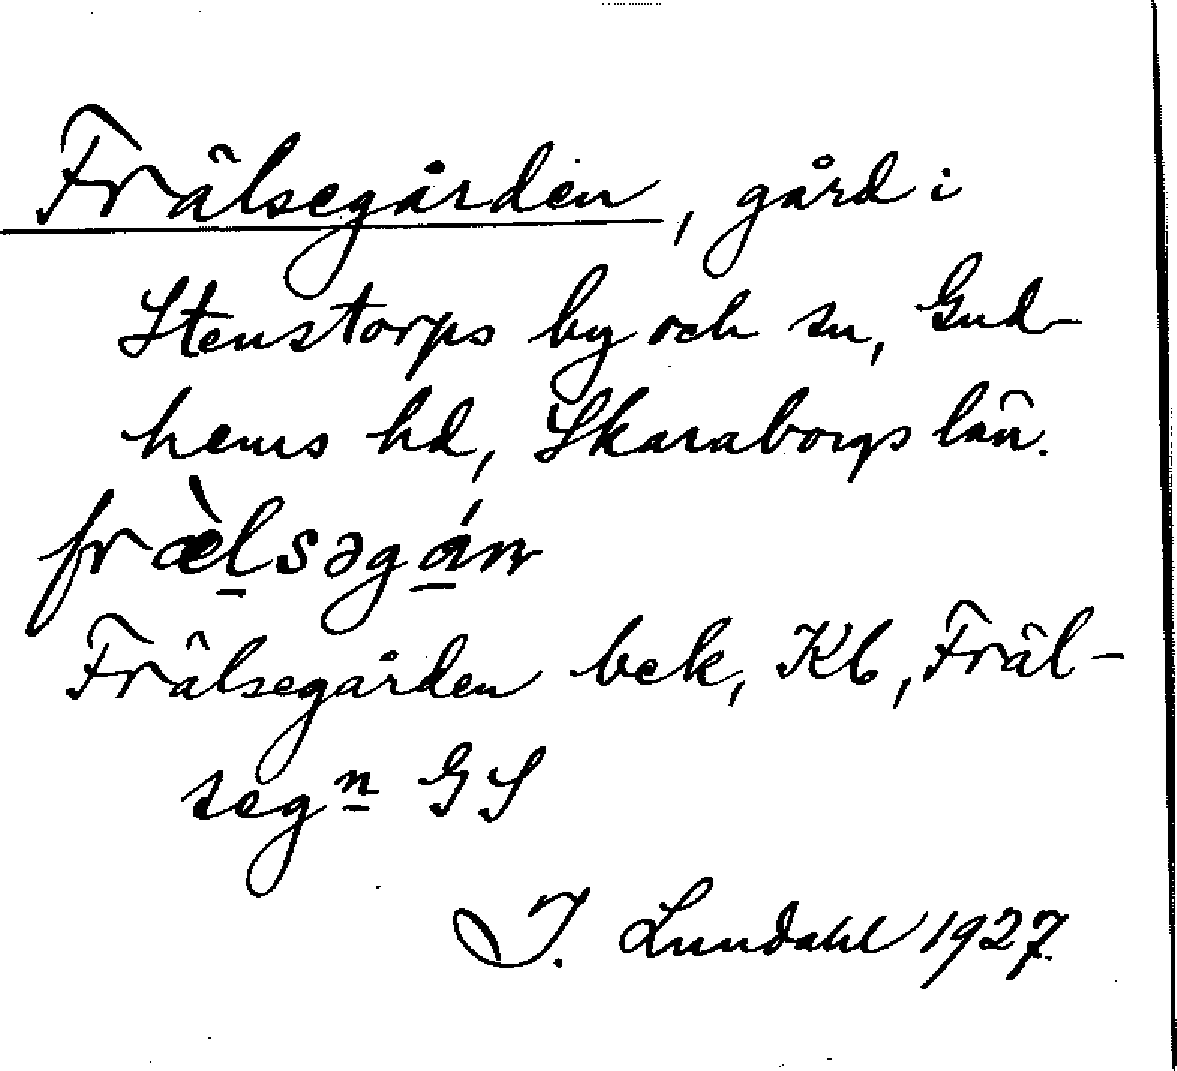 Frälsegården, gård i
Stenstorps by och sn, Gud-
hems hd, Skaraborgs län.
fræ̀l̠səgá̠rn
Frälsegården bek, Kb, Fräl-
segn GS
I. Lundahl 1927.